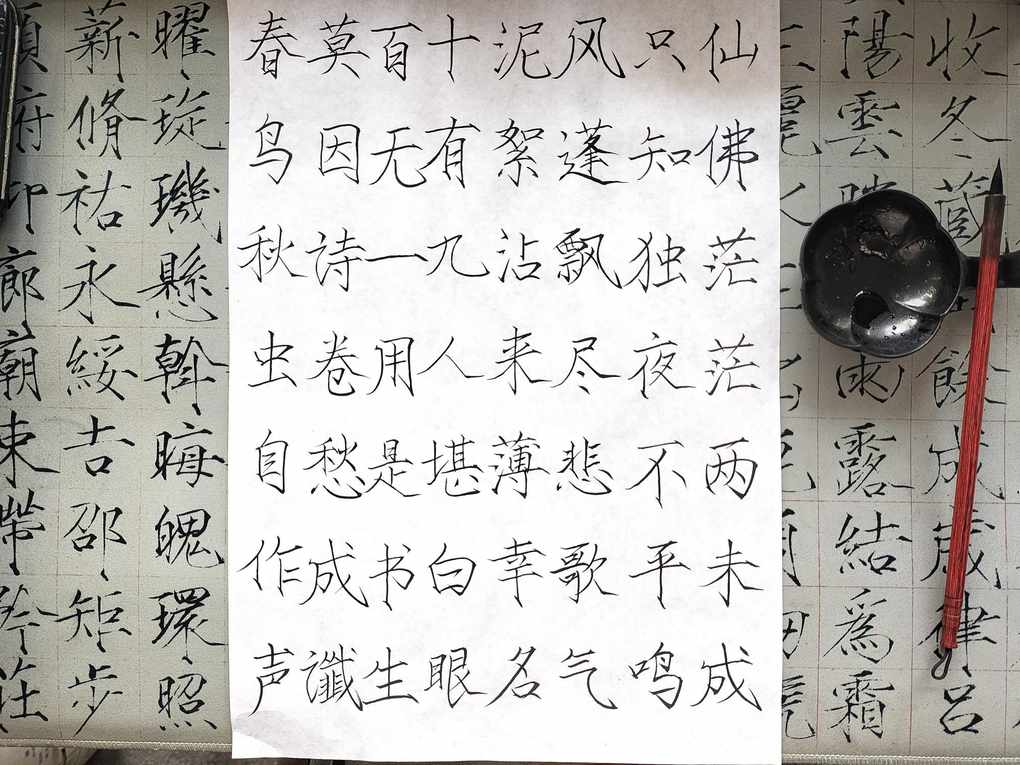 收冬藏餘成歲律呂
陽雲雨露結爲霜
仙佛茫茫两未成
只知独夜不平鸣
风蓬飘尽悲歌气
泥絮沾来薄幸名
十有九人堪白眼
百无一用是书生
莫因诗卷愁成谶
春鸟秋虫自作声
曜琁璣懸斡晦魄環照
薪脩祜永綏吉邵矩步
廊廟束帶矜莊